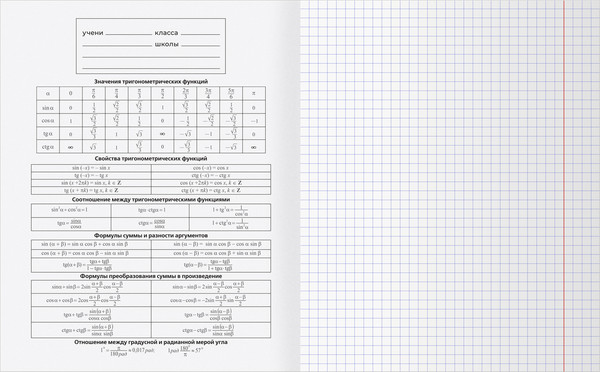 учени ____________ класса ________
____________ школы ________
Значения тригонометрических функций
α 0 π/6 π/4 π/3 π/2 2π/3 3π/4 5π/6 π
sin α 0 1/2 √2/2 √3/2 1 √3/2 √2/2 1/2 0
cos α 1 √3/2 √2/2 1/2 0 −1/2 −√2/2 −√3/2 −1
tg α 0 1 √3 ∞ −√3 −1 0
ctg α ∞ √3 1 0 −1 −√3 ∞
Свойства тригонометрических функций
sin (−x) = − sin x cos (−x) = cos x
tg (−x) = − tg x ctg (−x) = − ctg x
sin (x +2πk) = sin x, k ∈ Z cos (x +2πk) = cos x, k ∈ Z
tg (x + πk) = tg x, k ∈ Z ctg (x + πk) = ctg x, k ∈ Z
Соотношение между тригонометрическими функциями
sin²α+cos²α=1 tgα·ctgα=1 1+tg²α=1/cos²α
tgα=sinα/cosα ctgα=cosα/sinα 1+ctg²α=1/sin²α
Формулы суммы и разности аргументов
sin (α + β) = sin α cos β + cos α sin β sin (α − β) = sin α cos β − cos α sin β
cos (α + β) = cos α cos β − sin α sin β cos (α − β) = cos α cos β + sin α sin β
tg(α+β)=tgα+tgβ/1−tgα·tgβ tg(α−β)=tgα−tgβ/1+tgα·tgβ
Формулы преобразования суммы в произведение
sinα+sinβ=2sin α+β/2 cos α−β/2 sinα−sinβ=2sin α−β/2 cos α+β/2
cosα+cosβ=2cos α+β/2 cos α−β/2 cosα−cosβ=−2sin α+β/2 sin α−β/2
tgα+tgβ=sin(α+β)/cosα cosβ tgα−tgβ=sin(α−β)/cosα cosβ
ctgα+ctgβ=sin(α+β)/sinα sinβ ctgα−ctgβ=sin(α−β)/sinα sinβ
Отношение между градусной и радианной мерой угла
1°=π/180 рад≈0,017рад; 1рад 180°/π≈57°